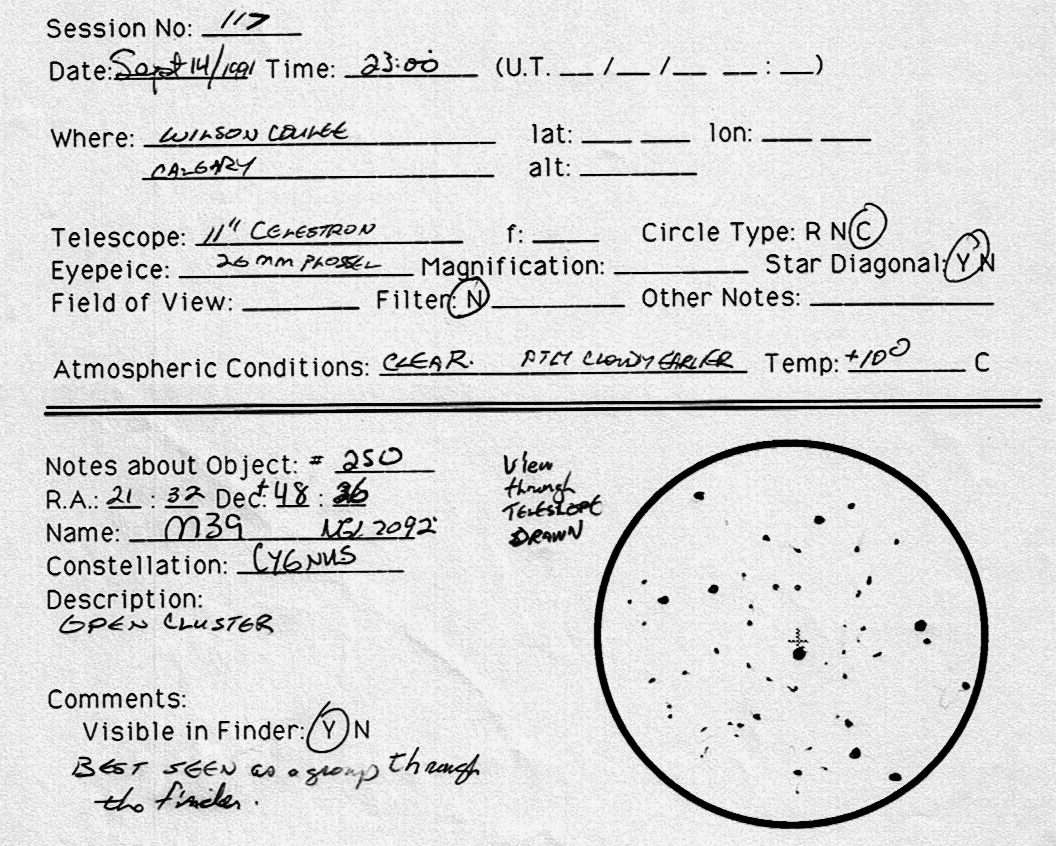 Session No: 117
Date: Sept 14/1991 Time: 23:00 (U.T. __ /__ /__ __ : __)
Where: WILSON COULEE lat: ___ ___ lon: ___ ___
CALGARY alt: ______
Telescope: 11" CELESTRON f: ____ Circle Type: R N C
Eyepeice: 26 mm PLOSSEL Magnification: ______ Star Diagonal: Y N
Field of View: ______ Filter: N ______ Other Notes: ______
Atmospheric Conditions: CLEAR. CLOUDY EARLIER Temp: +10° C
Notes about Object: # 250
R.A.: 21 : 32 Dec: +48 : 26
Name: M39 NGC 7092
Constellation: CYGNUS
Description:
OPEN CLUSTER
View
through
TELESCOPE
DRAWN
Comments:
Visible in Finder: Y N
BEST SEEN as a group through
the finder.